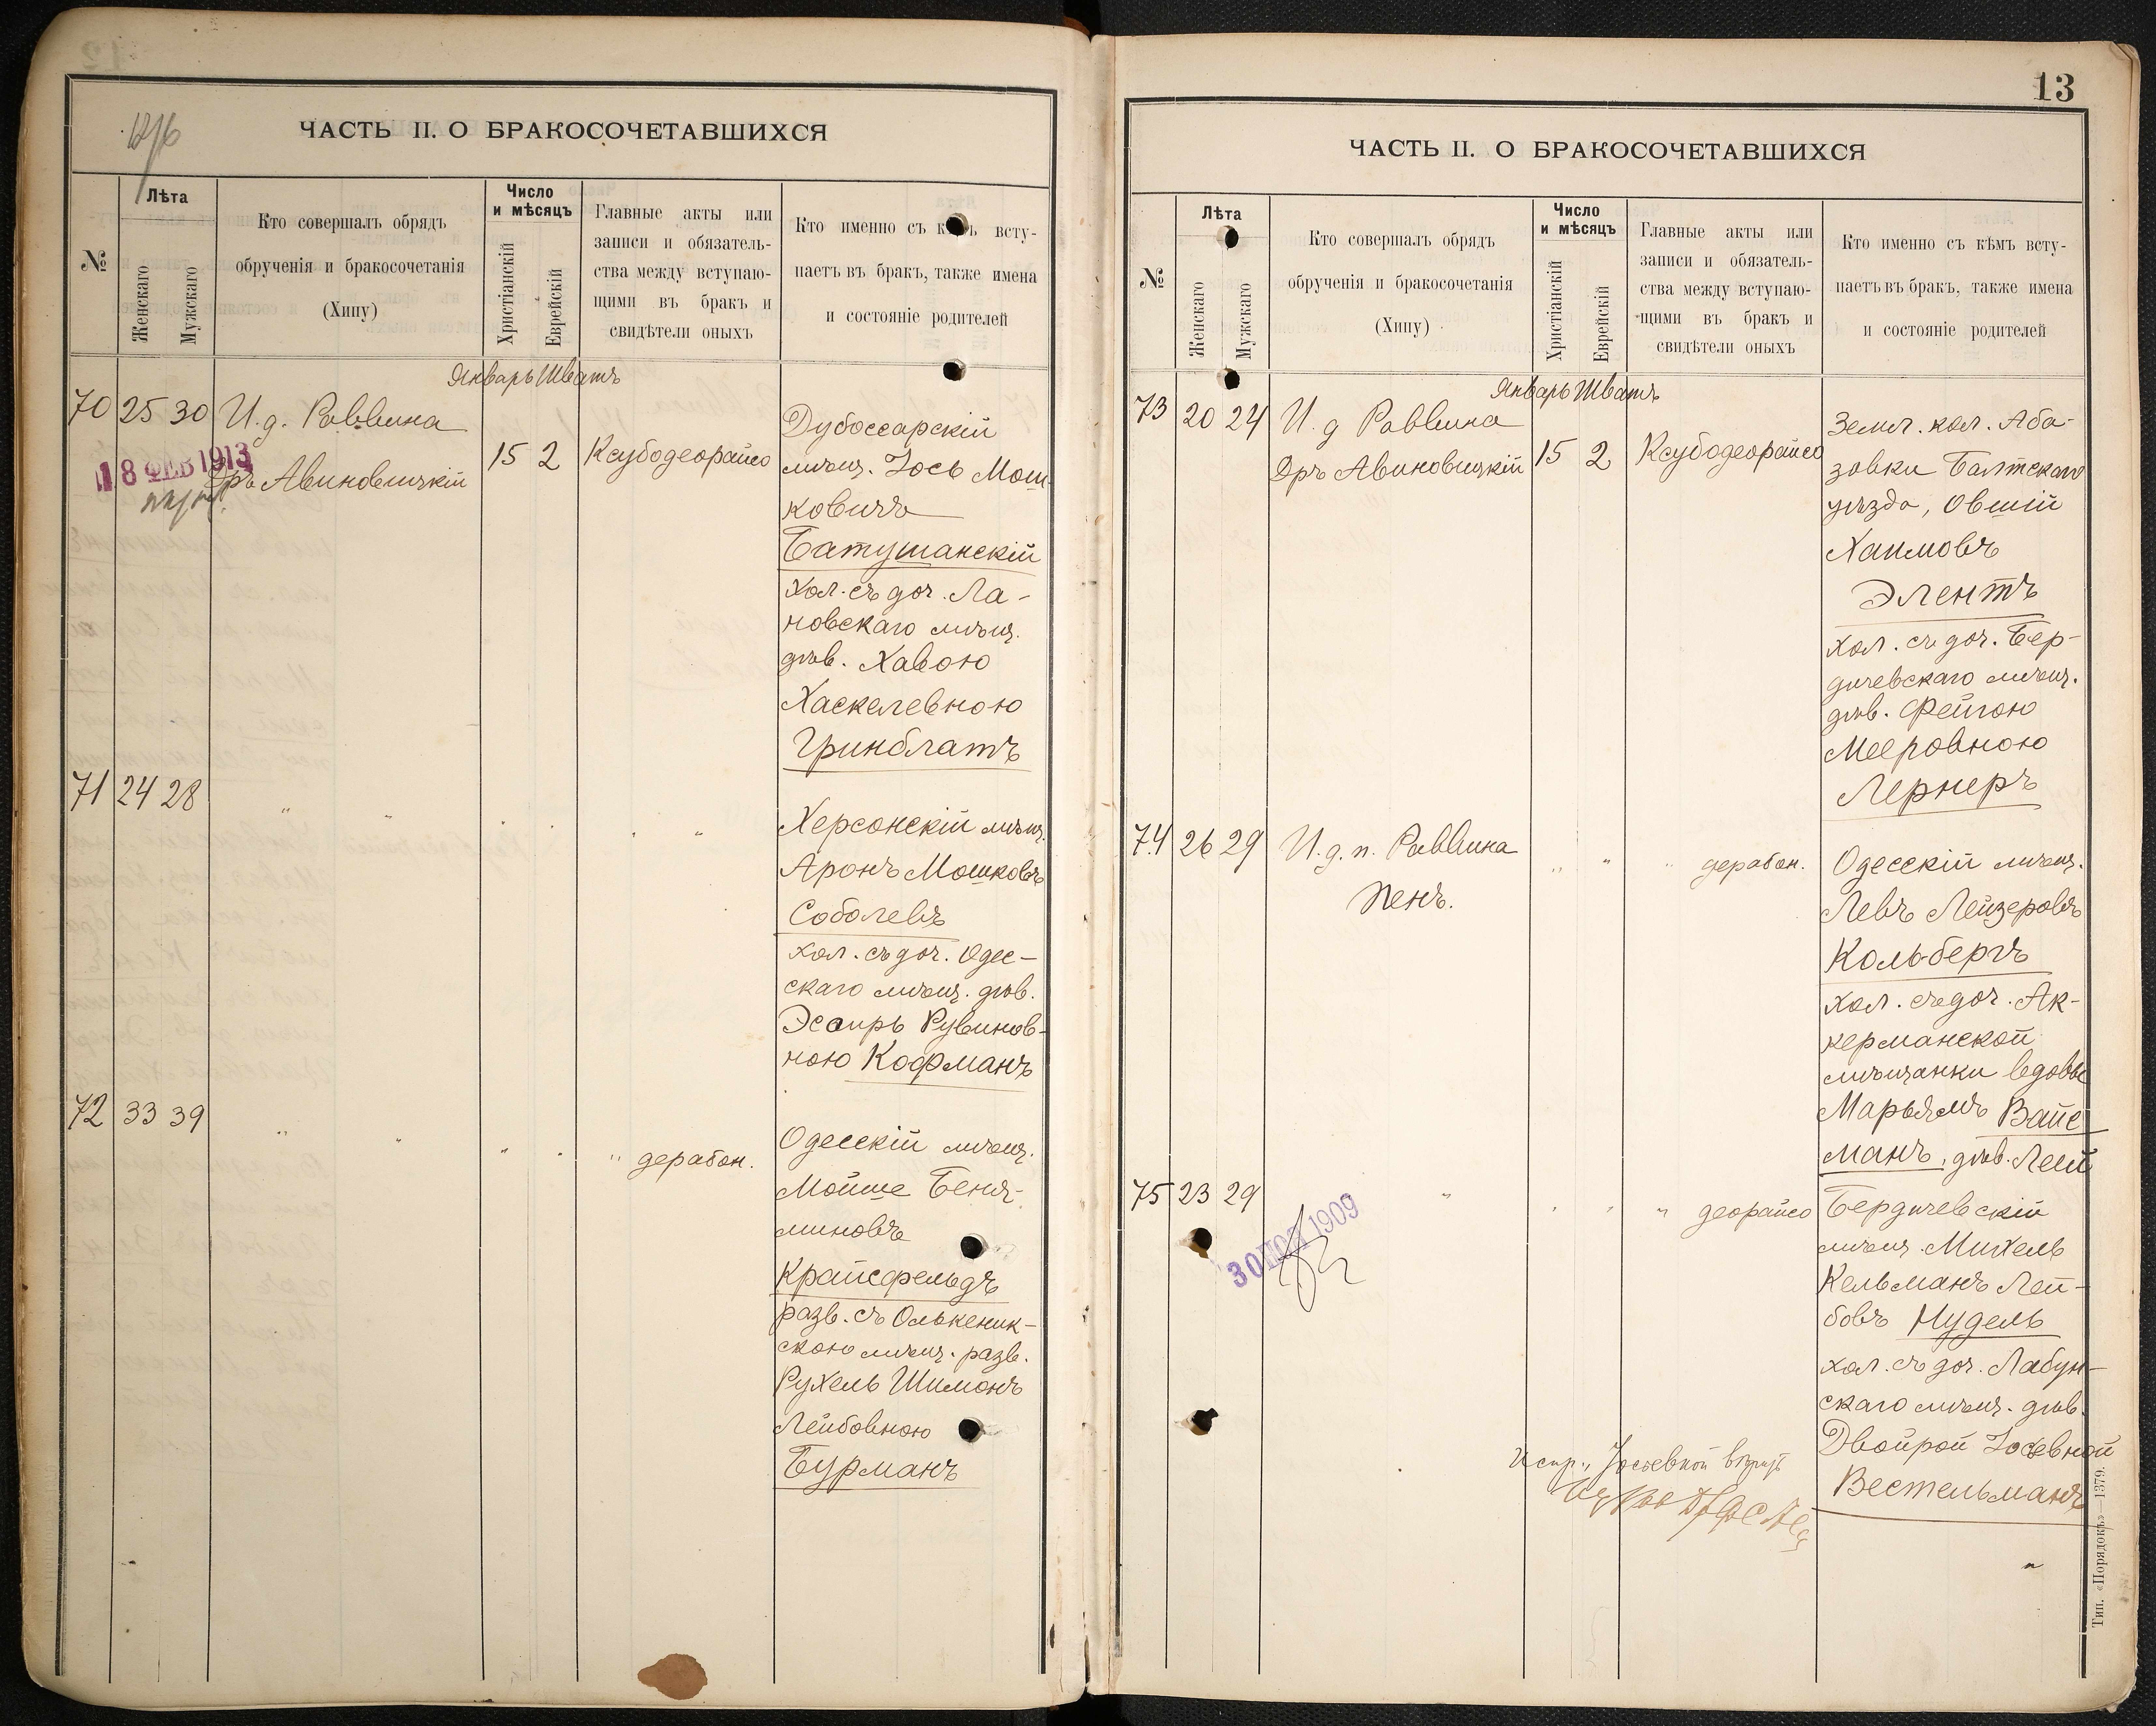 ЧАСТЬ II. О БРАКОСОЧЕТАВШИХСЯ
№
Лѣта
Женскаго
Мужскаго
Кто совершалъ обрядъ
обрученія и бракосочетанія
(Хипу)
Число
и мѣсяцъ
Христіанскій
Еврейскій
Главные акты или
записи и обязатель-
ства между вступаю-
щими въ бракъ и
свидѣтели оныхъ
Кто именно съ кѣмъ всту-
паетъ въ бракъ, также имена
и состояніе родителей
Январь Шватъ
70 25 30 И. д. Раввина
18 ФЕВ 1913
Дръ Авиновицкій
15 2 Ксубодеорайсо
Дубоссарскій
мѣщ. Іось Мош-
ковичъ
Батушанскій
хол. съ доч. Ла-
новскаго мѣщ.
дѣв. Хавою
Хаскелевною
Гринблатъ
71 24 28 " " " " " "
Херсонскій мѣщ.
Аронъ Мошковъ
Соболевъ
хол. съ доч. Одес-
скаго мѣщ. дѣв.
Эсѳирь Рувинов-
ною Кофманъ
72 33 39 " " " " " дерабон.
Одесскій мѣщ.
Мойше Беня-
миновъ
Крайсфельдъ
разв. съ Олькеник-
скою мѣщ. разв.
Рухель Шимонъ
Лейбовною
Бурманъ
13
ЧАСТЬ II. О БРАКОСОЧЕТАВШИХСЯ
№
Лѣта
Женскаго
Мужскаго
Кто совершалъ обрядъ
обрученія и бракосочетанія
(Хипу)
Число
и мѣсяцъ
Христіанскій
Еврейскій
Главные акты или
записи и обязатель-
ства между вступаю-
щими въ бракъ и
свидѣтели оныхъ
Кто именно съ кѣмъ всту-
паетъ въ бракъ, также имена
и состояніе родителей
Январь Шватъ
73 20 24 И. д Раввина
Дръ Авиновицкій
15 2 Ксубодеорайсо
Земл. кол. Аба-
зовки Балтскаго
уѣзда, Овшій
Хаимовъ
Элентъ
хол. съ доч. Бер-
дичевскаго мѣщ.
дѣв. Фейгою
Мееровною
Лернеръ
74 26 29 И. д. п. Раввина
Пенъ.
" " " дерабон.
Одесскій мѣщ.
Левъ Лейзеровъ
Кольбергъ
хол. съ доч. Ак-
керманской
мѣщанки вдовы
Марьямъ Вайс
манъ, дѣв. Леей
75 23 29 " " " " деорайсо
30 1909
Бердичевскій
мѣщ. Михель
Кельманъ Лей-
бовъ Нудель
хол. съ доч. Лабун-
скаго мѣщ. дѣв.
Двойрой Іосевной
Вестельманъ
Испр. "Іосевной вѣрить
Тип. «Порядокъ»—1379.